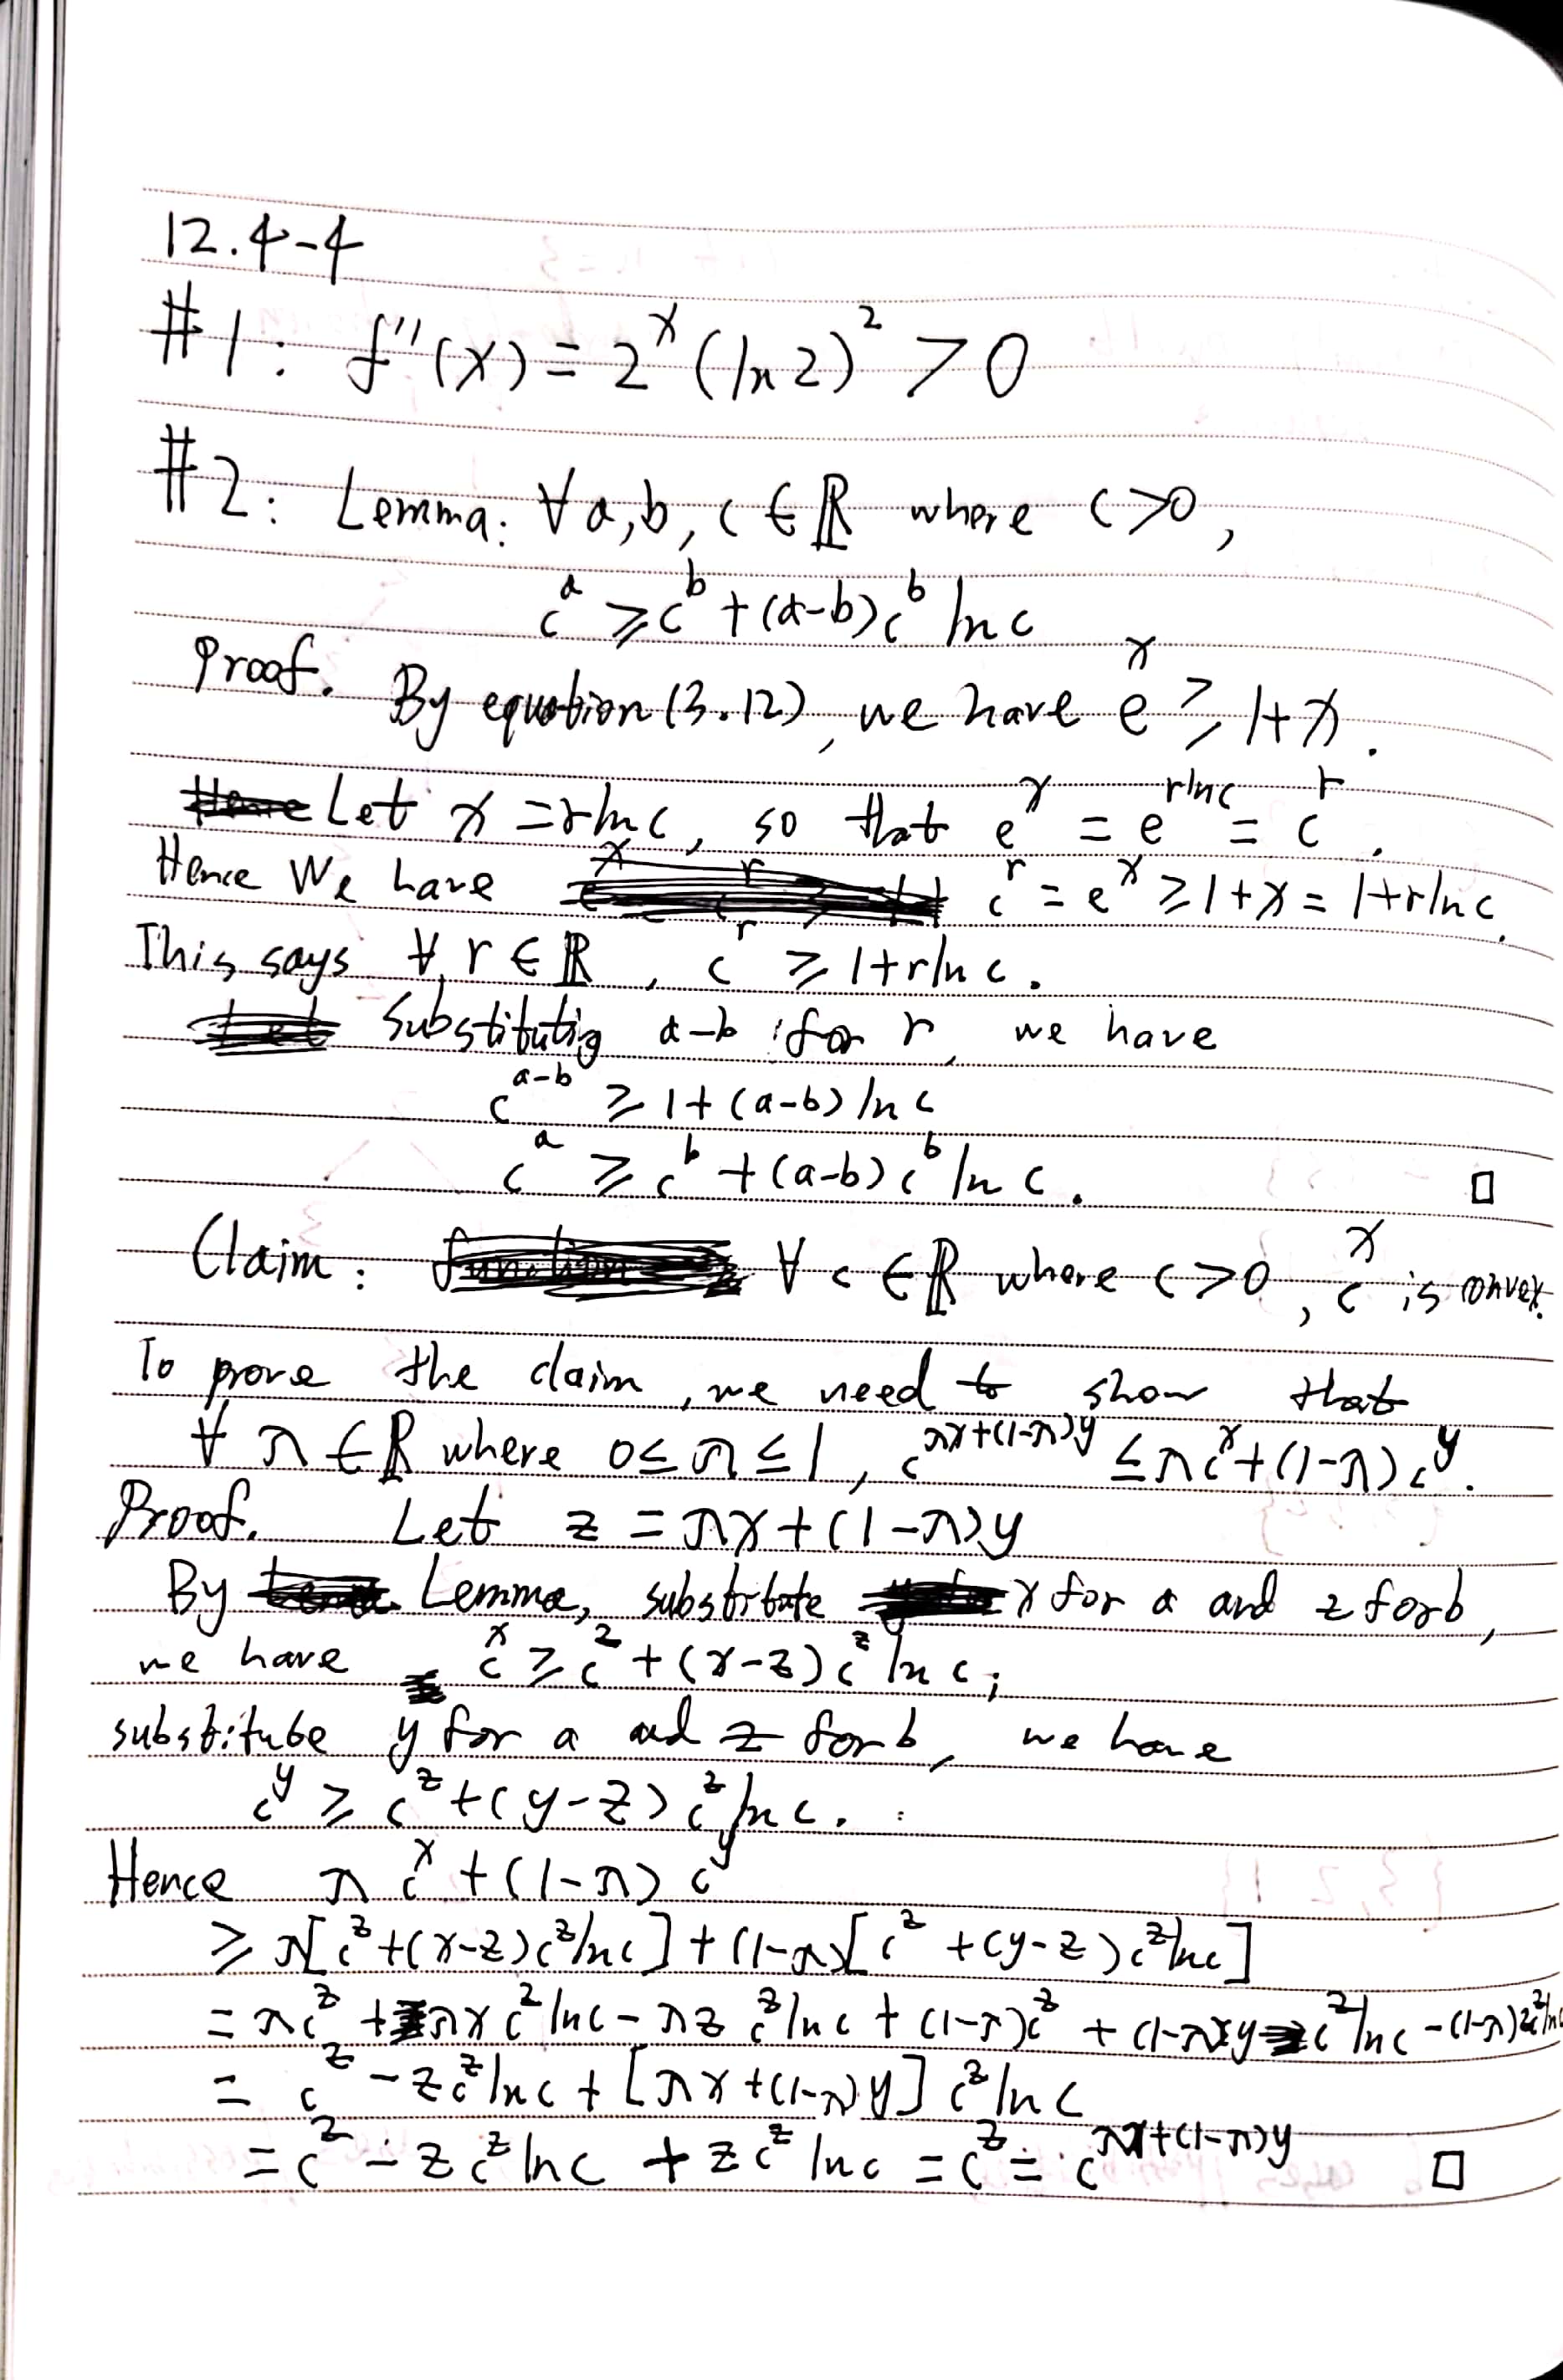 12.4-4
#1: f''(x) = 2^x (ln 2)^2 > 0
#2: Lemma: ∀ a, b, c ∈ ℝ where c > 0,
c^a ≥ c^b + (a-b) c^b ln c
Proof. By equation (3.12), we have e^x ≥ 1+x.
Let x = r ln c, so that e^x = e^{r ln c} = c^r.
Hence We have c^r = e^x ≥ 1+x = 1+r ln c.
This says ∀ r ∈ ℝ, c^r ≥ 1+r ln c.
Substitutig a-b for r, we have
c^{a-b} ≥ 1+(a-b) ln c
c^a ≥ c^b + (a-b) c^b ln c. □
Claim: ∀ c ∈ ℝ where c > 0, c^x is convex.
To prove the claim, we need to show that
∀ λ ∈ ℝ where 0 ≤ λ ≤ 1, c^{λx+(1-λ)y} ≤ λc^x + (1-λ)c^y.
Proof. Let z = λx + (1-λ)y
By Lemma, substitute x for a and z for b,
we have c^x ≥ c^z + (x-z) c^z ln c;
substitute y for a and z for b, we have
c^y ≥ c^z + (y-z) c^z ln c.
Hence λ c^x + (1-λ) c^y
≥ λ[c^z + (x-z) c^z ln c] + (1-λ)[c^z + (y-z) c^z ln c]
= λc^z + λx c^z ln c - λz c^z ln c + (1-λ)c^z + (1-λ)y c^z ln c - (1-λ)z c^z ln c
= c^z - z c^z ln c + [λx + (1-λ)y] c^z ln c
= c^z - z c^z ln c + z c^z ln c = c^z = c^{λx+(1-λ)y} □